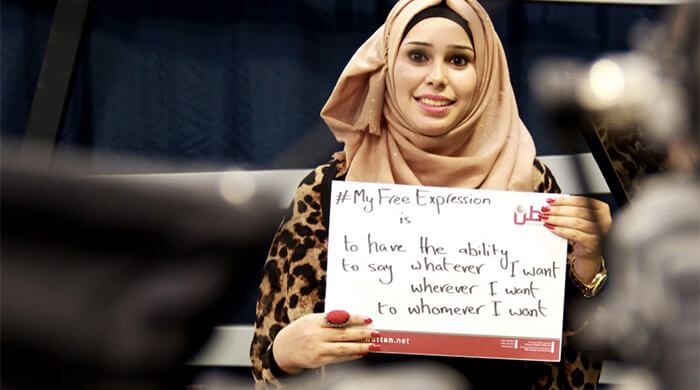 #My Free Expression
is
to have the ability
to say whatever I want
wherever I want
to whomever I want
wattan.net